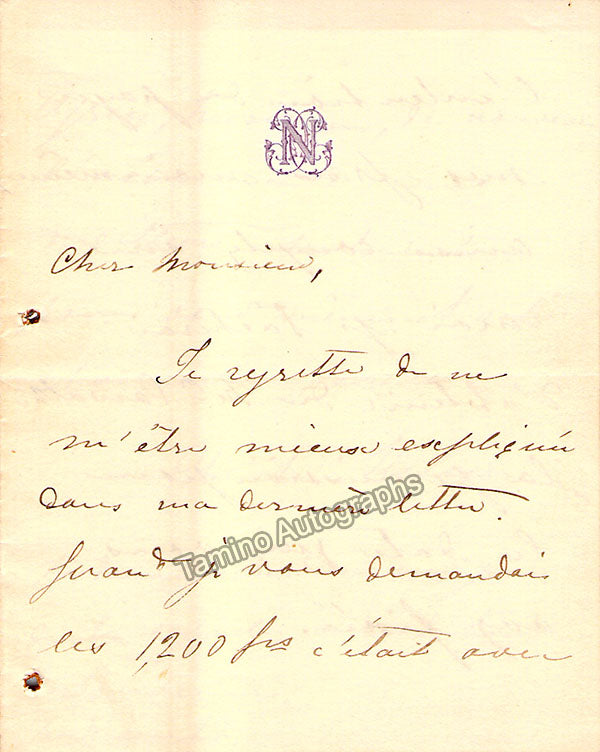 N
Cher Monsieur,
Je regrette de ne
m'être mieux expliquée
dans ma dernière lettre.
Quand je vous demandais
les 1,200 frs c'était avec
Tamino Autographs